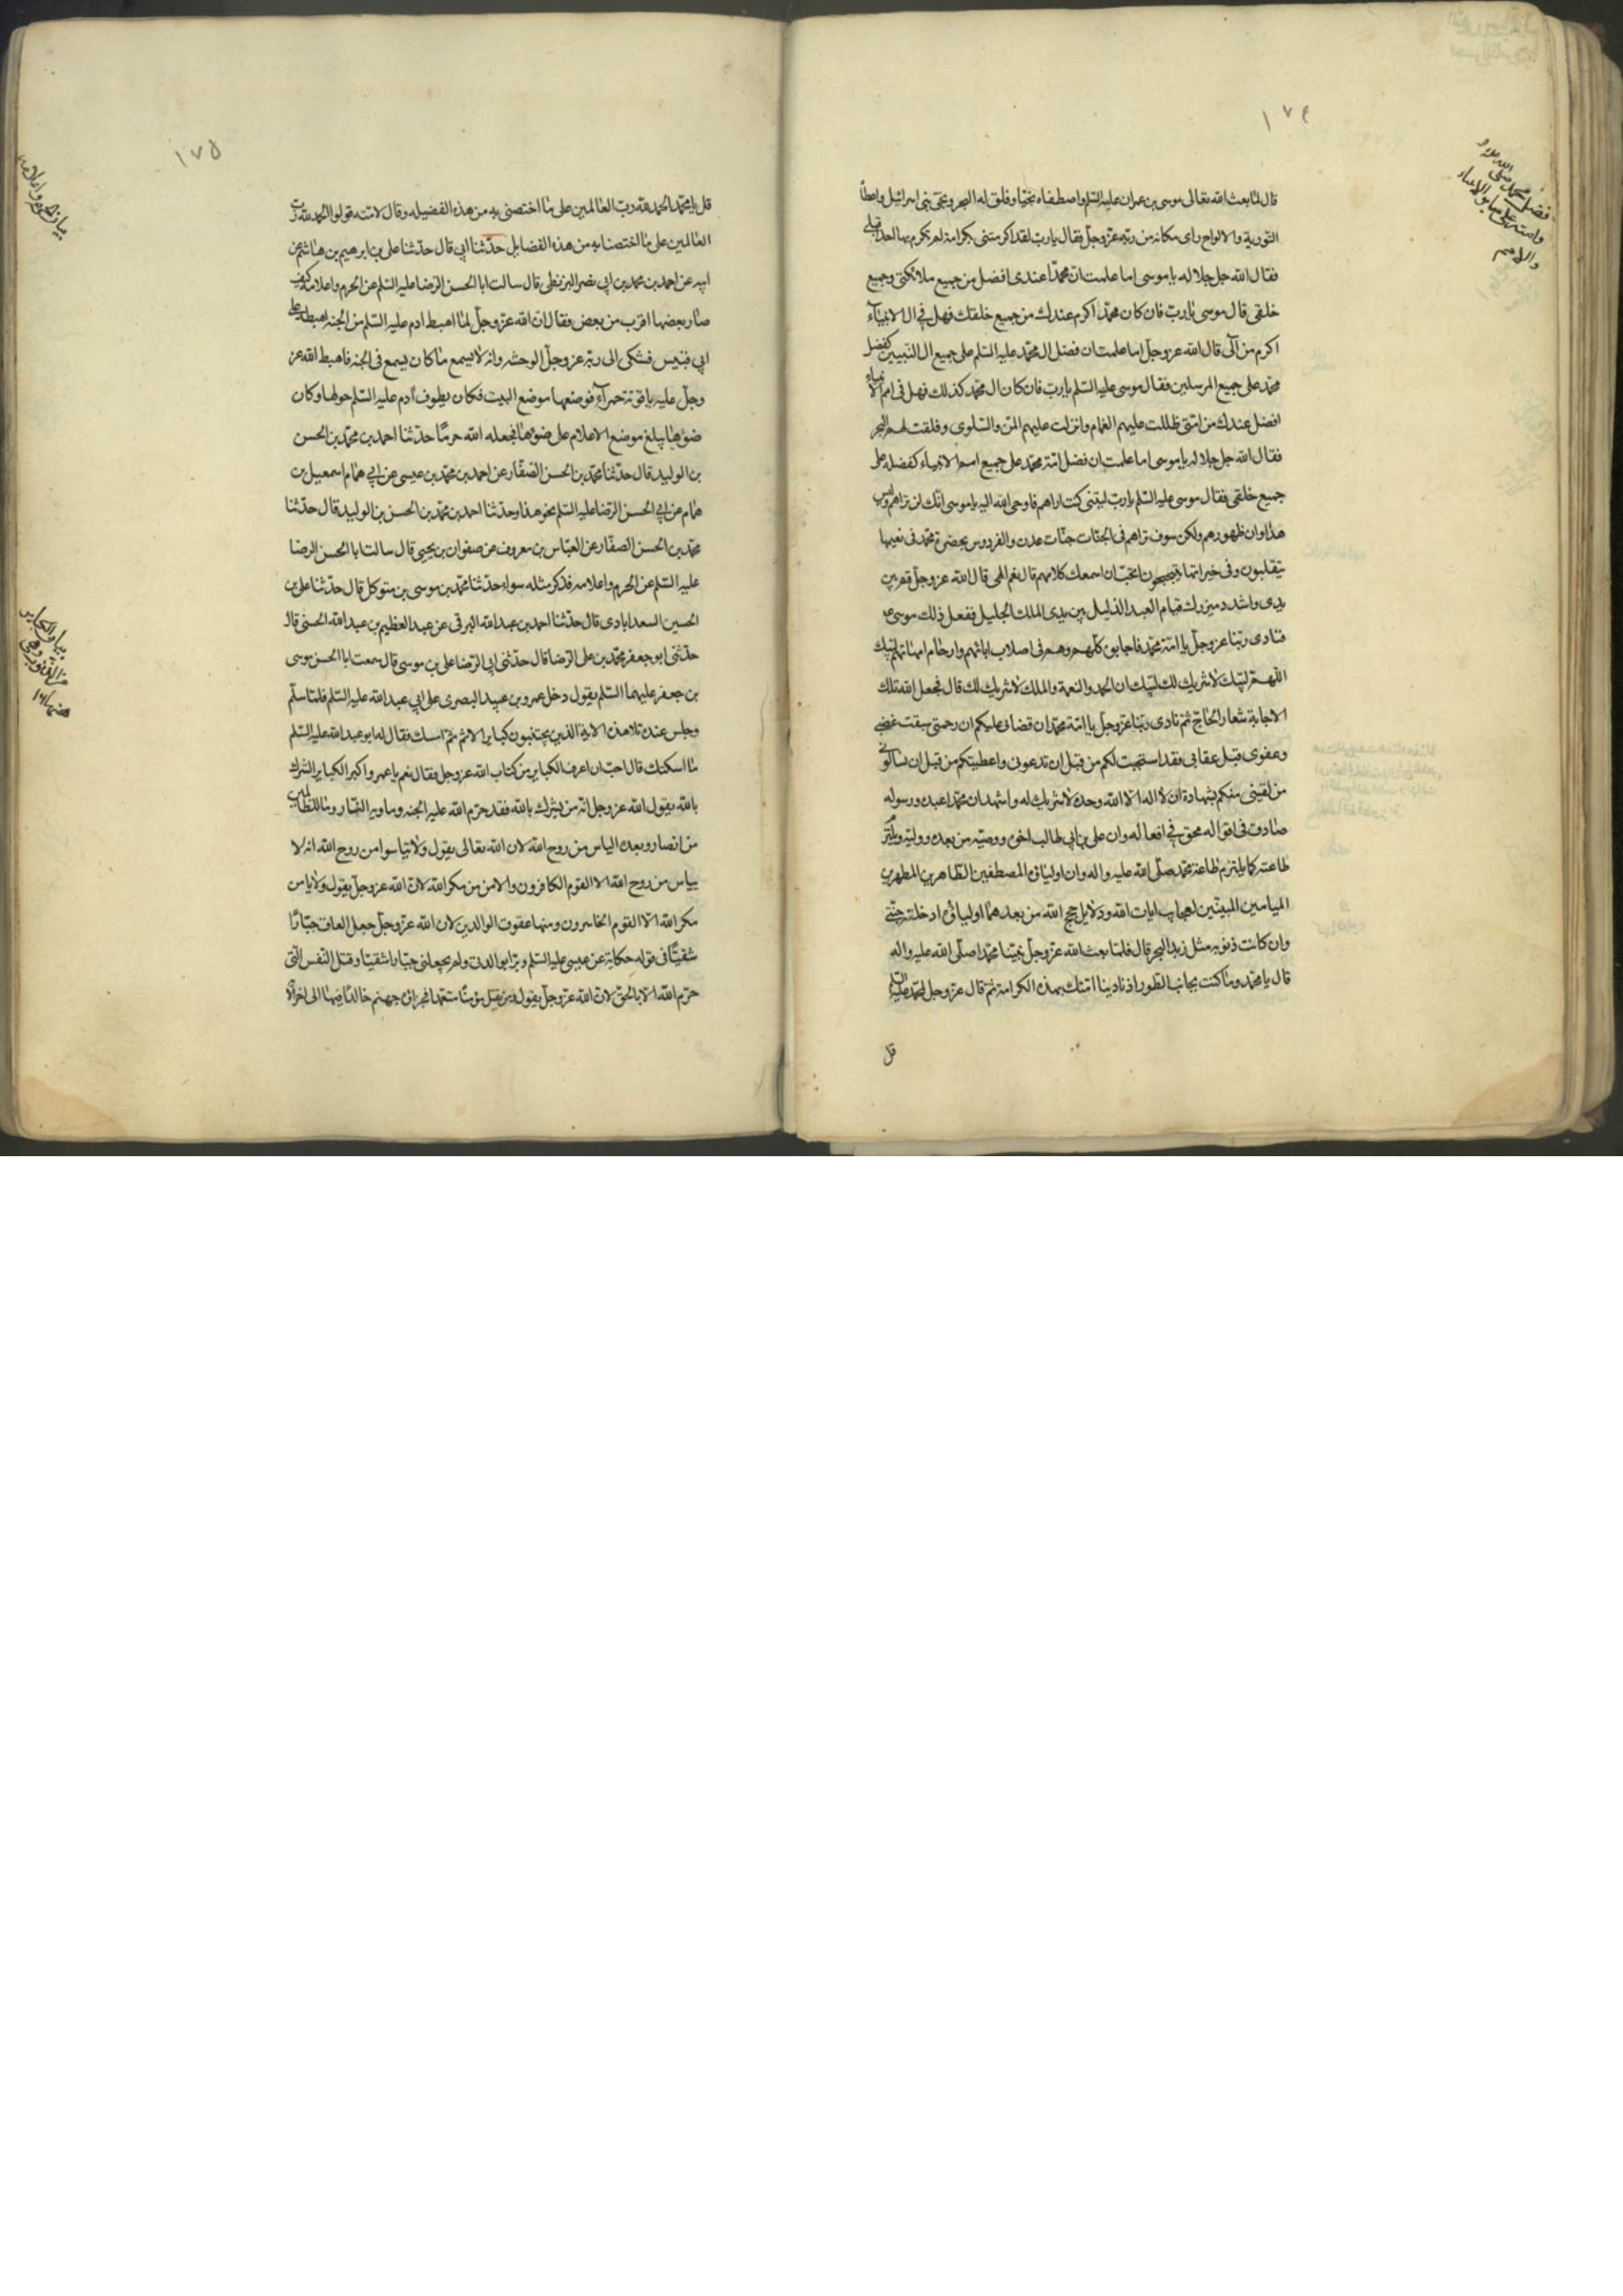 ١٧٤
فضل محمد صلى الله عليه و
وامته على ساير الانبياء
والامم
قال لما بعث الله تعالى موسى بن عمران عليه السلم واصطفاه نجيا وفلق له البحر ونجى بنى اسرائيل واعطاه
التورية والالواح راى مكانه من ربه عز وجل فقال يا رب لقد اكرمتنى بكرامة لم تكرم بها احدا قبلى
فقال الله جل جلاله يا موسى اما علمت ان محمدا عندى افضل من جميع ملائكتى وجميع
خلقى قال موسى يا رب فان كان محمد اكرم عندك من جميع خلقك فهل فى ال الانبياء
اكرم من آلى قال الله عز وجل اما علمت ان فضل ال محمد عليه السلم على جميع ال النبيين كفضل
محمد على جميع المرسلين فقال موسى عليه السلم يا رب فان كان ال محمد كذلك فهل فى امم الانبياء
افضل عندك من امتى ظللت عليهم الغمام وانزلت عليهم المن والسلوى وفلقت لهم البحر
فقال الله جل جلاله يا موسى اما علمت ان فضل امة محمد على جميع امم الانبياء كفضله على
جميع خلقى فقال موسى عليه السلم يا رب ليتنى كنت اراهم فاوحى الله اليه يا موسى انك لن تراهم وليس
هذا اوان ظهورهم ولكن سوف تراهم فى الجنات جنات عدن والفردوس بحضرة محمد فى نعيمها
يتقلبون وفى خيراتها يتبحبحون افتحب ان اسمعك كلامهم قال نعم الهى قال الله عز وجل قم بين
يدى واشدد ميزرك قيام العبد الذليل بين يدى الملك الجليل ففعل ذلك موسى
فنادى ربنا عز وجل يا امة محمد فاجابوه كلهم وهم فى اصلاب ابائهم وارحام امهاتهم لبيك
اللهم لبيك لا شريك لك لبيك ان الحمد والنعمة والملك لا شريك لك قال فجعل الله تلك
الاجابة شعار الحاج ثم نادى ربنا عز وجل يا امة محمد ان قضائى عليكم ان رحمتى سبقت غضبى
وعفوى قبل عقابى فقد استجبت لكم من قبل ان تدعونى واعطيتكم من قبل ان تسالونى
من لقينى منكم بشهادة ان لا اله الا الله وحده لا شريك له واشهد ان محمدا عبده ورسوله
صادق فى اقواله محق فى افعاله وان على بن ابى طالب اخوه ووصيه من بعده ووليه ويلتزم
طاعته كما يلتزم طاعة محمد صلى الله عليه واله وان اوليائه المصطفين الطاهرين المطهرين
الميامين المبينين بعجايب ايات الله ودلايل حجج الله من بعدهما اوليائه ادخلته جنتى
وان كانت ذنوبه مثل زبد البحر قال فلما بعث الله عز وجل نبينا محمدا صلى الله عليه واله
قال يا محمد وما كنت بجانب الطور اذ نادينا امتك بهذه الكرامة ثم قال عز وجل لمحمد عليه السلم
قل
١٧٥
بيان الحرم واعلامه
قل يا محمد الحمد لله رب العالمين على ما اختصنى به من هذه الفضيلة وقال لامته قولوا الحمد لله رب
العالمين على ما اختصنا به من هذه الفضايل حدثنا ابى قال حدثنا على بن ابرهيم بن هاشم عن
ابيه عن احمد بن محمد بن ابى نصر البزنطى قال سالت ابا الحسن الرضا عليه السلم عن الحرم واعلامه كيف
صار بعضها اقرب من بعض فقال ان الله عز وجل لما اهبط ادم عليه السلم من الجنة اهبطه على
ابى قبيس فشكى الى ربه عز وجل الوحشه وانه لا يسمع ما كان يسمع فى الجنه فاهبط الله عز
وجل عليه ياقوتة حمراء فوضعها موضع البيت فكان يطوف ادم عليه السلم حولها وكان
ضوؤها يبلغ موضع الاعلام على ضوؤها فجعله الله حرما حدثنا احمد بن محمد بن الحسن
بن الوليد قال حدثنا محمد بن الحسن الصفار عن احمد بن محمد بن عيسى عن ابى همام اسمعيل بن
همام عن ابى الحسن الرضا عليه السلم نحو هذا وحدثنا احمد بن محمد بن الحسن بن الوليد قال حدثنا
محمد بن الحسن الصفار عن العباس بن معروف عن صفوان بن يحيى قال سالت ابا الحسن الرضا
عليه السلم عن الحرم واعلامه فذكر مثله سواء حدثنا محمد بن موسى بن متوكل قال حدثنا على بن
الحسين السعدابادى قال حدثنا احمد بن عبد الله البرقى عن عبد العظيم بن عبد الله الحسنى قال
حدثنى ابو جعفر محمد بن على الرضا قال حدثنى ابى الرضا على بن موسى قال سمعت ابا الحسن موسى
بن جعفر عليهما السلم يقول دخل عمرو بن عبيد البصرى على ابى عبد الله عليه السلم فلما سلم
وجلس عنده تلا هذه الاية الذين يجتنبون كباير الاثم ثم امسك فقال له ابو عبد الله عليه السلم
ما اسكتك قال احب ان اعرف الكباير من كتاب الله عز وجل فقال نعم يا عمرو اكبر الكباير الشرك
بالله يقول الله عز وجل انه من يشرك بالله فقد حرم الله عليه الجنه وماويه النار وما للظالمين
من انصار وبعده الياس من روح الله لان الله تعالى يقول ولا تياسوا من روح الله انه لا
يياس من روح الله الا القوم الكافرون والامن من مكر الله لان الله عز وجل يقول ولا يامن
مكر الله الا القوم الخاسرون ومنها عقوق الوالدين لان الله عز وجل جعل العاق جبارا
شقيا فى قوله حكاية عن عيسى عليه السلم وبرا بوالدتى ولم يجعلنى جبارا شقيا وقتل النفس التى
حرم الله الا بالحق لان الله عز وجل يقول ومن يقتل مؤمنا متعمدا فجزاؤه جهنم خالدا فيها الى اخر الاية
بيان الكباير